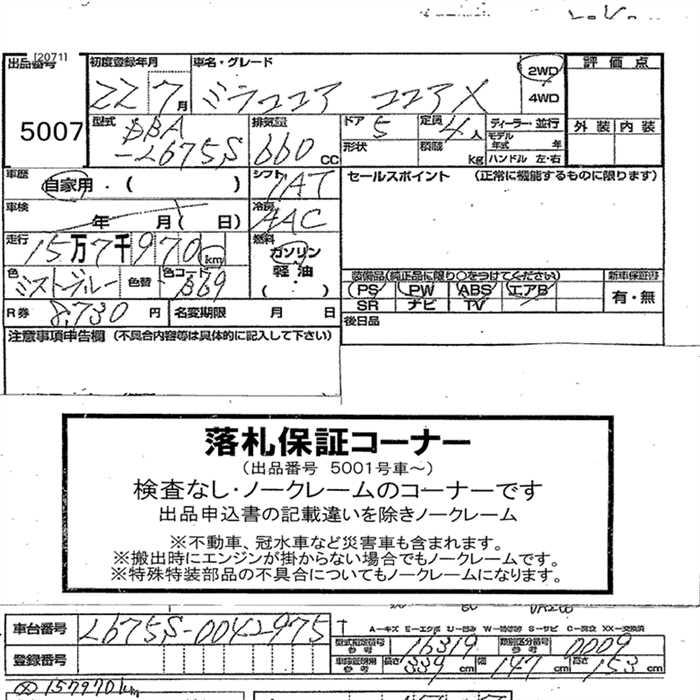 [2071]
出品番号 初度登録年月 車名・グレード 2WD 評価点
5007 22 7月 ミラココア ココアX 4WD
型式 DBA-L675S 排気量 660CC ドア 5 定員 4人 ディーラー・並行 外装 内装
形状 積載 kg モデル年式 年 ハンドル 左・右
車歴 自家用・( ) シフト IAT セールスポイント (正常に機能するものに限ります)
車検 年 月( 日) 冷房 AAC
走行 15万7千970km 燃料 ガソリン 軽油 ( ・ )
色 ミストブルー 色替 色コード B69 装備品(純正品に限り○をつけてください) 新車保証書
PS PW ABS エアB 有・無
SR ナビ TV
R券 8,730円 名変期限 月 日 後日品
注意事項申告欄 (不具合内容等は具体的に記入して下さい)
落札保証コーナー
(出品番号 5001号車~)
検査なし・ノークレームのコーナーです
出品申込書の記載違いを除きノークレーム
※不動車、冠水車など災害車も含まれます。
※搬出時にエンジンが掛からない場合でもノークレームです。
※特殊特装部品の不具合についてもノークレームになります。
車台番号 L675S-0042975
A-キズ E-エクボ U-凹み W-補修跡 S-サビ C-腐食 XX-交換済
型式指定番号 参考 16319 類別区分番号 参考 0009
登録番号 車検証明用 参考 長さ 339cm 幅 147cm 高さ 153cm
157970km